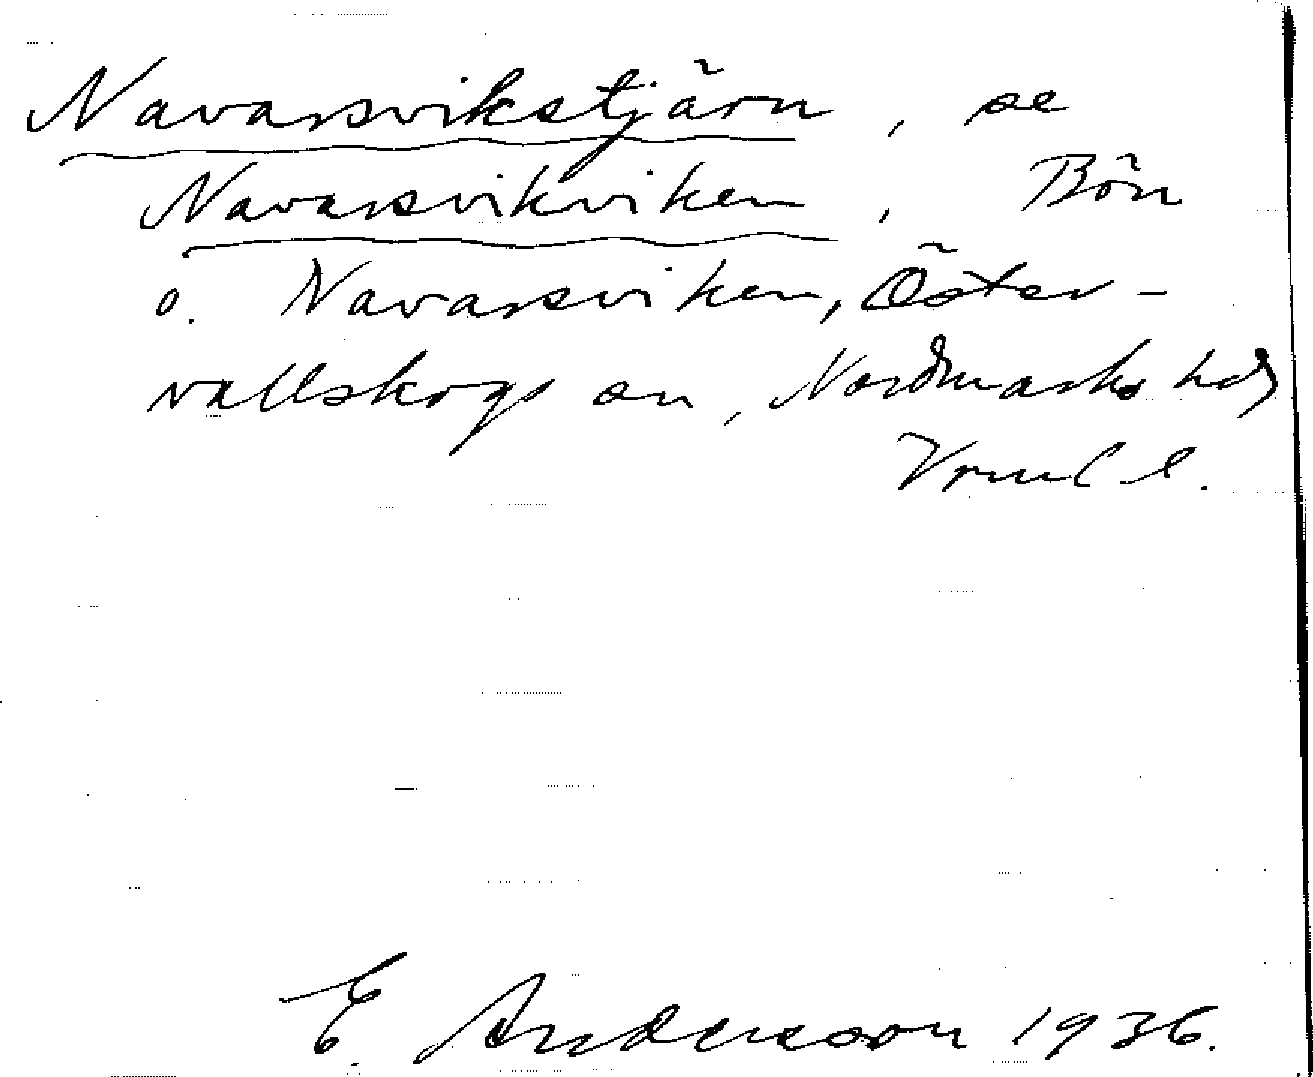 Navarsvikstjärn, se
Navarsvikviken, Bön
o. Navarsviken, Öster-
vallskogs sn, Nordmarks hd
Vrml l.
E. Andersson 1936.